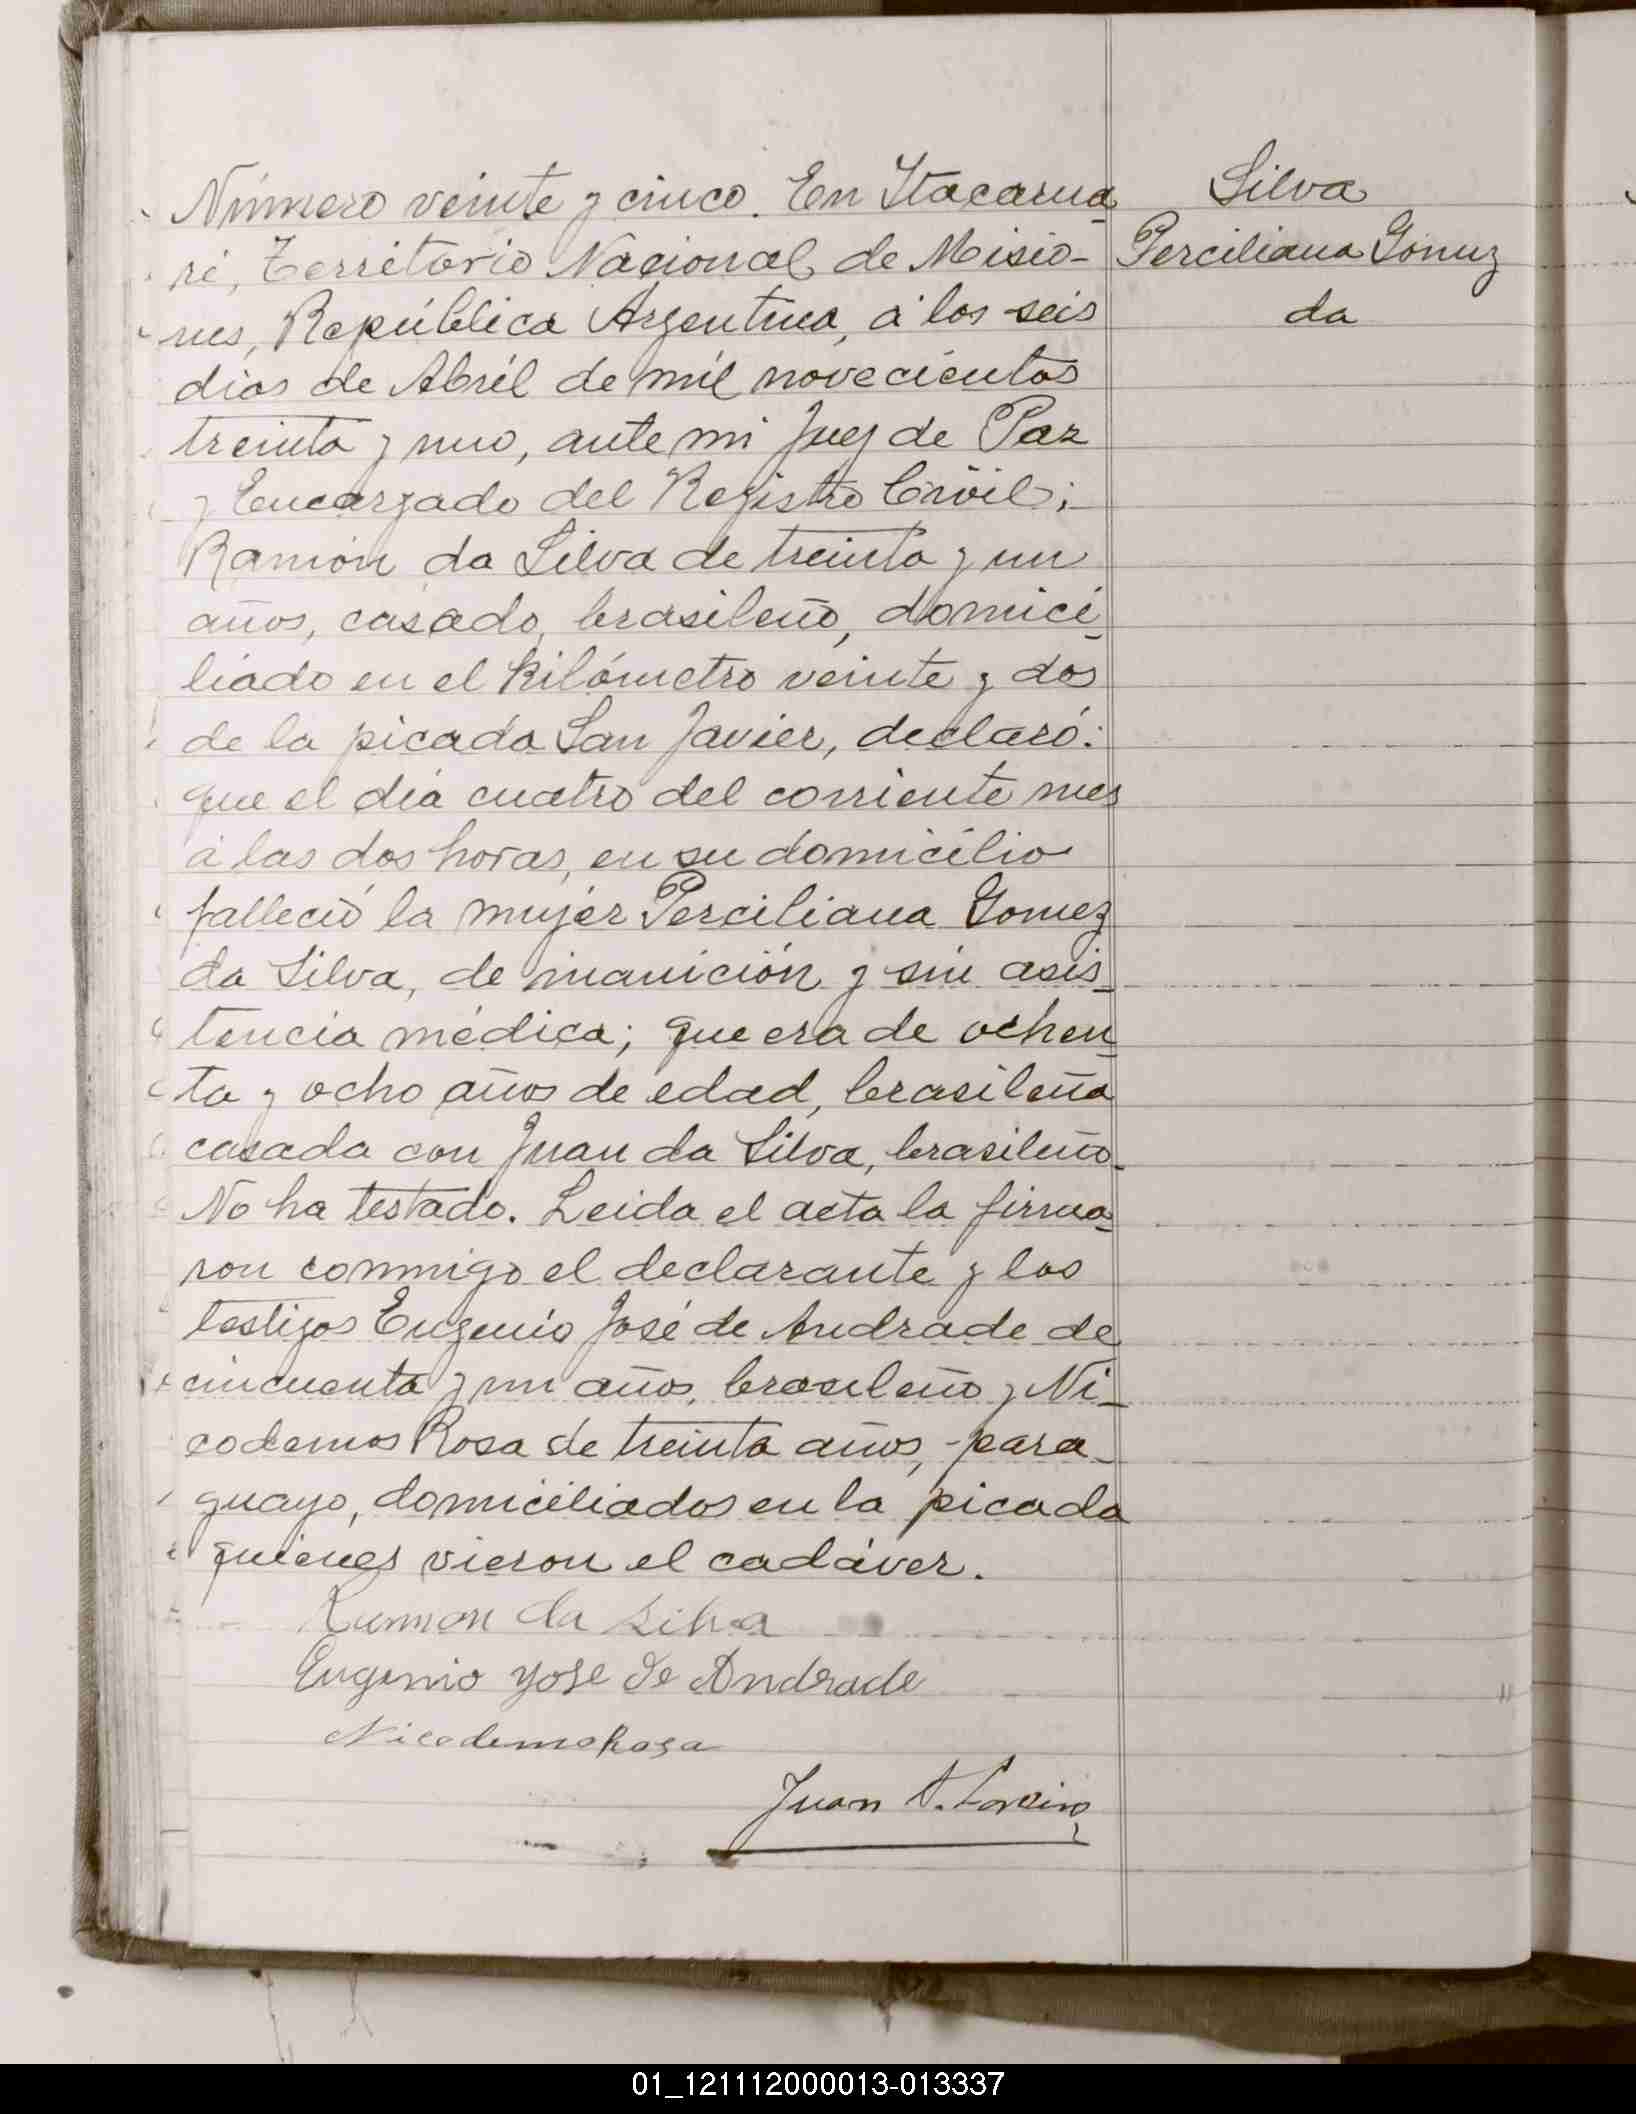 Número veinte y cinco. En Itacarua-
ri, Territorio Nacional de Misio-
nes, República Argentina, á los seis
dias de Abril de mil novecientos
treinta y uno, ante mi Juez de Paz
y Encargado del Registro Civil;
Ramón da Silva de treinta y un
años, casado, brasileño, domici-
liado en el kilómetro veinte y dos
de la picada San Javier, declaró:
que el día cuatro del corriente mes
á las dos horas, en su domicilio
falleció la mujer Perciliana Gomez
da Silva, de inanición y sin asis-
tencia médica; que era de ochen-
ta y ocho años de edad, brasileña
casada con Juan da Silva, brasileño.
No ha testado. Leida el acta la firma-
ron conmigo el declarante y los
testigos Eugenio José de Andrade de
cincuenta y un años, brasileño y Ni-
codemos Rosa de treinta años, para-
guayo, domiciliados en la picada
quienes vieron el cadáver.
Rumon da Silva
Eugenio Yose de Andrade
Nicodemo Rosa
Juan A.
Silva
Perciliana Gomez
da
01_121112000013-013337